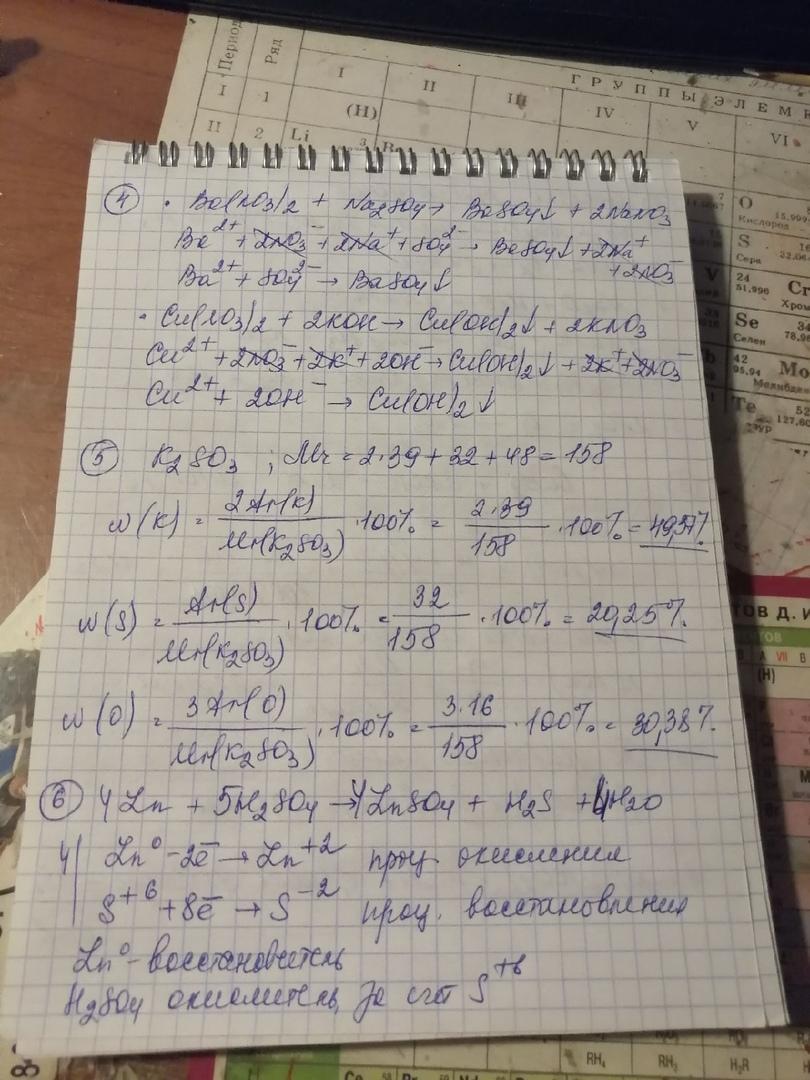 Период
Ряд
ГРУППЫ ЭЛЕМ
I II III IV V VI
I 1 (H)
II 2 Li 3
④ · Ba(NO3)2 + Na2SO4 → BaSO4↓ + 2NaNO3
Ba²⁺ + 2NO3⁻ + 2Na⁺ + SO4²⁻ → BaSO4↓ + 2Na⁺
+ 2NO3⁻
Ba²⁺ + SO4²⁻ → BaSO4↓
· Cu(NO3)2 + 2KOH → Cu(OH)2↓ + 2KNO3
Cu²⁺ + 2NO3⁻ + 2K⁺ + 2OH⁻ → Cu(OH)2↓ + 2K⁺ + 2NO3⁻
Cu²⁺ + 2OH⁻ → Cu(OH)2↓
⑤ K2SO3 ; Mr = 2·39 + 32 + 48 = 158
w(K) = 2Ar(K) / Mr(K2SO3) · 100% = 2·39 / 158 · 100% = 49,37%
w(S) = Ar(S) / Mr(K2SO3) · 100% = 32 / 158 · 100% = 20,25%
w(O) = 3Ar(O) / Mr(K2SO3) · 100% = 3·16 / 158 · 100% = 30,38%
⑥ 4Zn + 5H2SO4 → 4ZnSO4 + H2S + 4H2O
4 | Zn⁰ - 2e̅ → Zn⁺² проц. окисления
| S⁺⁶ + 8e̅ → S⁻² проц. восстановления
Zn⁰ - восстановитель
H2SO4 окислитель за счёт S⁺⁶
O
15,999
Кислород
S
Сера
32,06
V 24 Cr
51,996 Хром
Se 34
Селен 78,96
42 Mo
95,94 Молибден
Te 52
127,60
ТОВ Д. И
A VII B
(H)
RH4 RH3 H2R